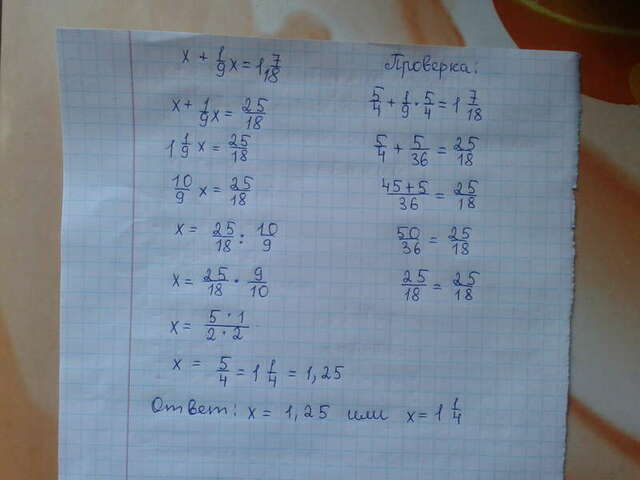 x + 1/9 x = 1 7/18
x + 1/9 x = 25/18
1 1/9 x = 25/18
10/9 x = 25/18
x = 25/18 : 10/9
x = 25/18 · 9/10
x = 5·1/2·2
x = 5/4 = 1 1/4 = 1,25
Проверка:
5/4 + 1/9 · 5/4 = 1 7/18
5/4 + 5/36 = 25/18
45+5/36 = 25/18
50/36 = 25/18
25/18 = 25/18
Ответ: x = 1,25 или x = 1 1/4